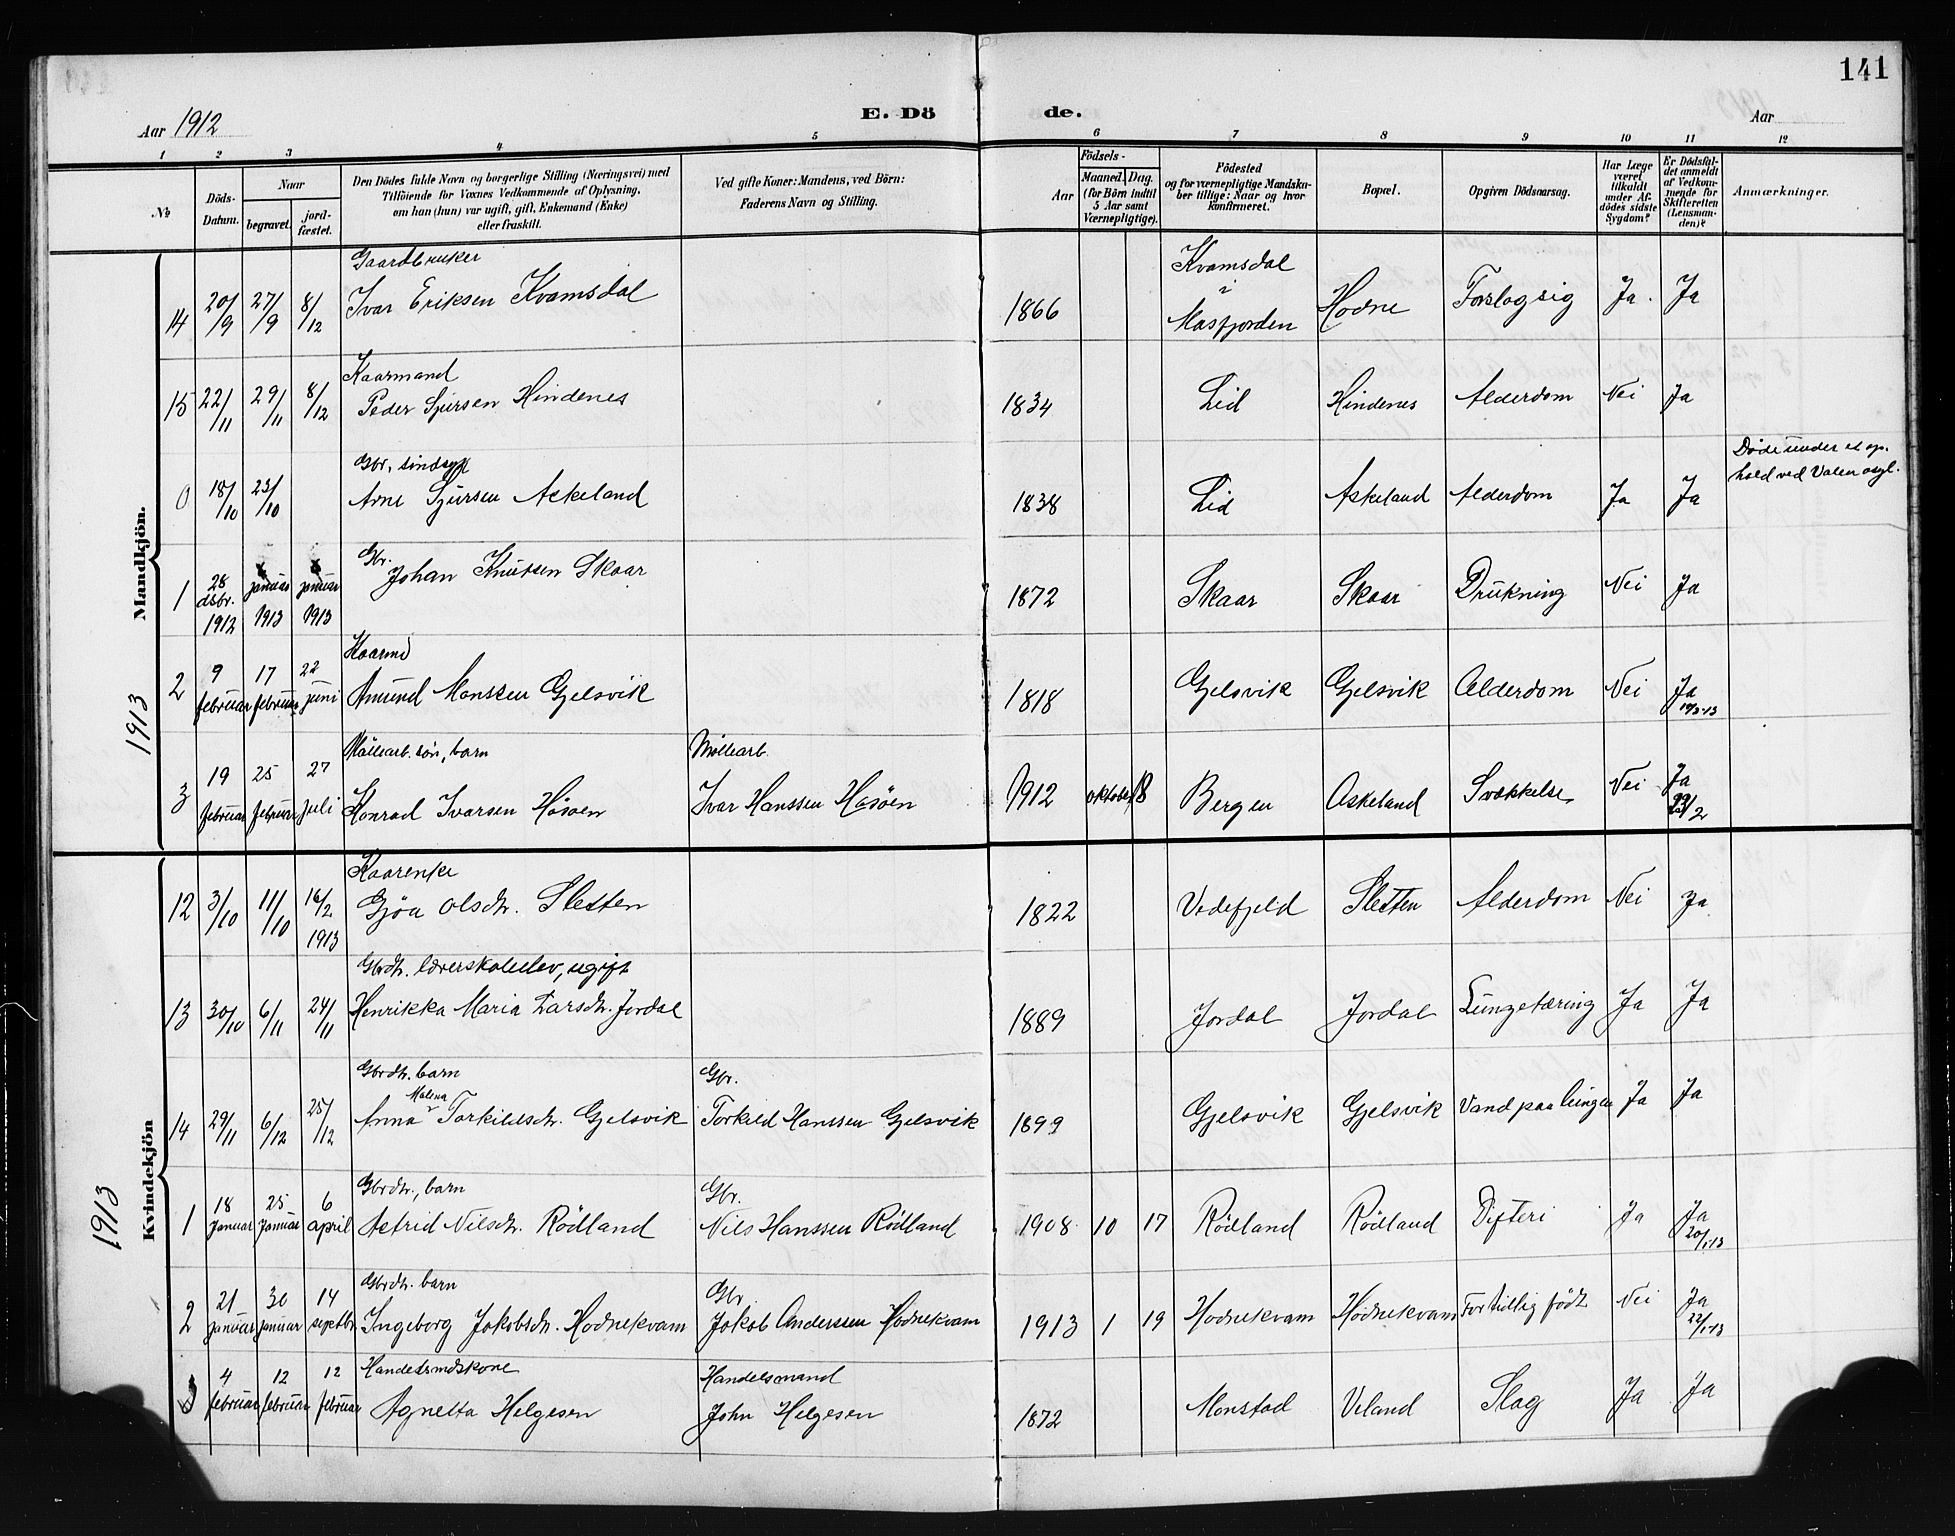 141
Aar 1912
E. Dö de.
Aar
1 2 3 4 5 6 7 8 9 10 11 12
№
Döds-Datum.
Naar
begravet.
jord-fæstet.
Den Dödes fulde Navn og borgerlige Stilling (Næringsvei) med
Tilföiende for Voxnes Vedkommende af Oplysning,
om han (hun) var ugift, gift, Enkemand (Enke)
eller fraskilt.
Ved gifte Koner: Mandens, ved Börn:
Faderens Navn og Stilling.
Födsels-
Aar
Maaned. Dag.
(for Börn indtil
5 Aar samt
Værnepligtige).
Födested
og for værnepligtige Mandska-
ber tillige: Naar og hvor
konfirmeret.
Bopæl.
Opgiven Dödsaarsag.
Har Læge
været
tilkaldt
under Af-
dödes sidste
Sygdom?
Er Dödsfal-
det anmeldt
af Vedkom-
mende for
Skifteretten
(Lensman-
den)?
Anmærkninger.
Mandkjön.
Gaardbruker
14 20/9 27/9 8/12 Ivar Eriksen Kvamsdal 1866 Kvamsdal i Masfjorden Hodne Forslog sig Ja. Ja
Kaarmand
15 22/11 29/11 8/12 Peder Sjursen Hindenes 1834 Lid Hindenes Alderdom Nei Ja
Gbr, sindsyk
0 18/10 23/10 Arne Sjursen Askeland 1838 Lid Askeland Alderdom Ja Ja Døde under et op-
hold ved Valen asyl.
1913
Gbr.
1 28 dsbr. 1912 januar 1913 januar 1913 Johan Knutsen Skaar 1872 Skaar Skaar Drukning Nei Ja
Kaarmd
2 9 februar 17 februar 22 juni Amund Monssen Gjelsvik 1818 Gjelsvik Gjelsvik Alderdom Nei Ja
Möllearb. sön, barn Möllearb.
3 19 februar 25 februar 27 juli Konrad Ivarsen Håsøen Ivar Hanssen Hasøen 1912 oktober 18 Bergen Askeland Svækkelse Nei Ja
Kvindekjön
Kaarenke
12 3/10 11/10 16/2 1913 Gjöa Olsdtr. Sletten 1822 Vedefjeld Sletten Alderdom Nei Ja
Gbrdtr. lærerskoleelev, ugift
13 30/10 6/11 24/11 Henrikka Maria Larsdtr. Jordal 1889 Jordal Jordal Lungetæring Ja Ja
Gbrdtr. barn Gbr.
14 29/11 6/12 25/12 Anna Malena Torkildsdtr. Gjelsvik Torkild Hanssen Gjelsvik 1899 Gjelsvik Gjelsvik Vand paa lungen Ja Ja
1913
Gbrdtr., barn Gbr.
1 18 januar 25 januar 6 april Astrid Nilsdtr. Rödland Nils Hanssen Rödland 1908 10 17 Rödland Rödland Difteri Ja Ja 20/1-13
Gbrdtr. barn Gbr.
2 21 januar 30 januar 14 septbr. Ingeborg Jakobsdtr. Hodnekvam Jakob Anderssen Hodnekvam 1913 1 19 Hodnekvam Hodnekvam For tidlig födt Nei Ja 22/1-13
Handelsmdskone Handelsmand
3 4 februar 12 februar 12 februar Agnetta Helgesen John Helgesen 1872 Monstad Veland Slag Ja Ja